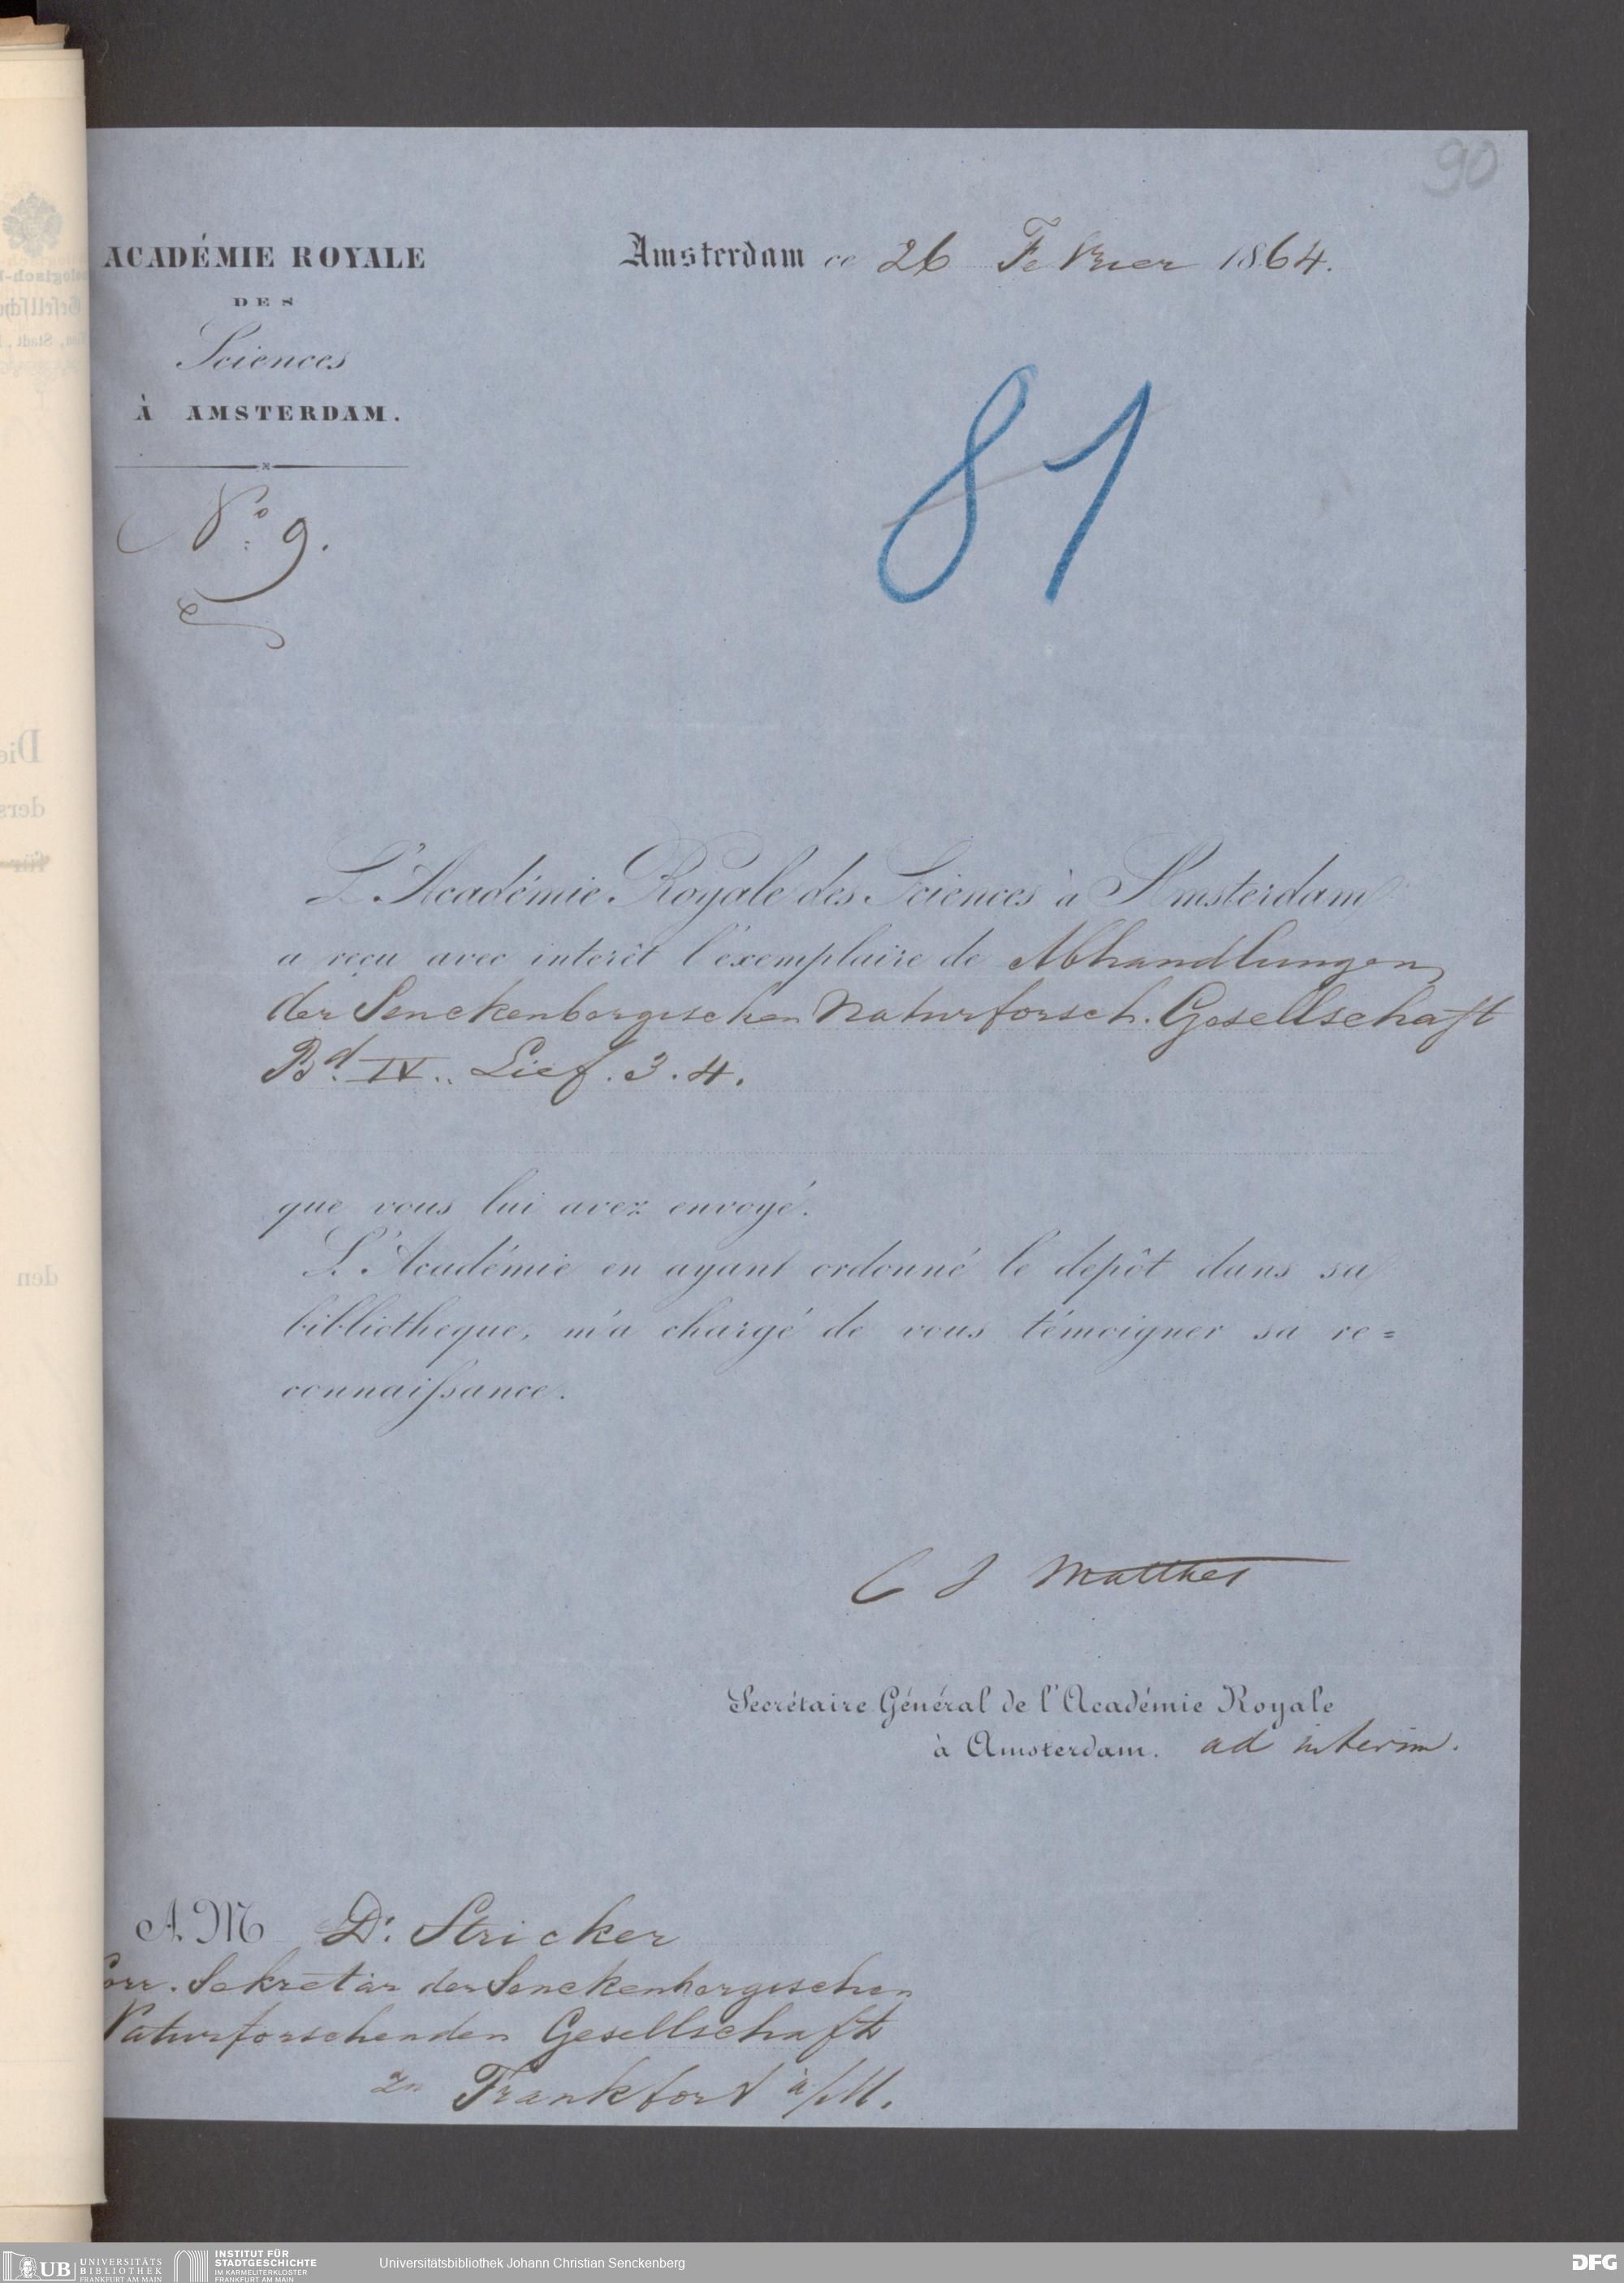 90
ACADÉMIE ROYALE
DES
Sciences
À AMSTERDAM.
Amsterdam ce 26 Fevrier 1864.
No 9.
81
L'Académie Royale des Sciences à Amsterdam
a reçu avec interêt l'exemplaire de Abhandlungen
der Senckenbergischen Naturforsch. Gesellschaft
Bd. IV.. Lief. 3. 4.
que vous lui avez envoyé.
L'Académie en ayant ordonné le depôt dans sa
bibliotheque, m'a chargé de vous témoigner sa re=
connaiſsance.
C J Matthes
Secrétaire Général de l'Académie Royale
à Amsterdam. ad interim.
A. M Dr. Stricker
Corr. Sekretär der Senckenbergischen
Naturforschenden Gesellschaft
zu Frankfort a/M.
Die
ders
für
den
UB UNIVERSITÄTS
BIBLIOTHEK
FRANKFURT AM MAIN
INSTITUT FÜR
STADTGESCHICHTE
IM KARMELITERKLOSTER
FRANKFURT AM MAIN
Universitätsbibliothek Johann Christian Senckenberg
DFG